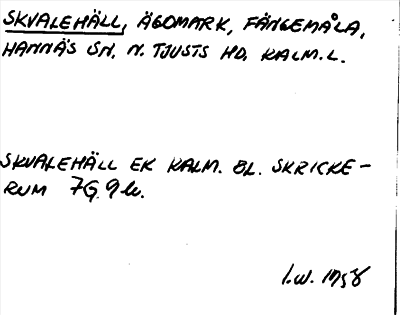 SKVALEHÄLL, ÄGOMARK, FÄNGEMÅLA,
HANNÄS SN. N. TJUSTS HD, KALM. L.
SKVALEHÄLL EK KALM. BL. SKRICKE-
RUM 7G. 9b.
I.W.